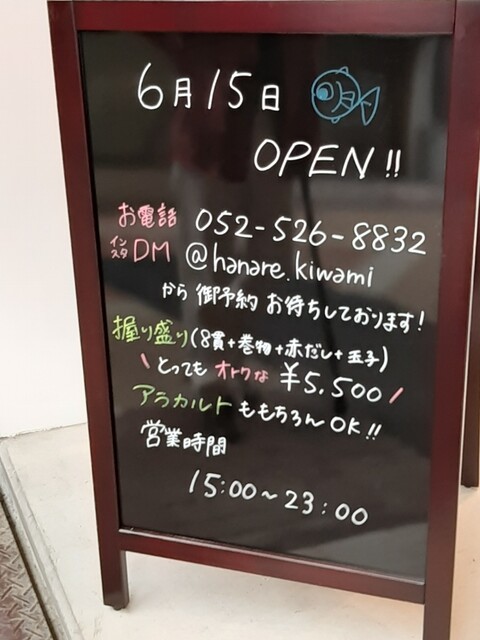 6月15日
OPEN!!
お電話 052-526-8832
インスタDM @hanare.kiwami
から 御予約 お待ちしております!
握り盛り(8貫+巻物+赤だし+玉子)
\とっても オトクな ¥5,500/
アラカルト ももちろんOK!!
営業時間
15:00~23:00